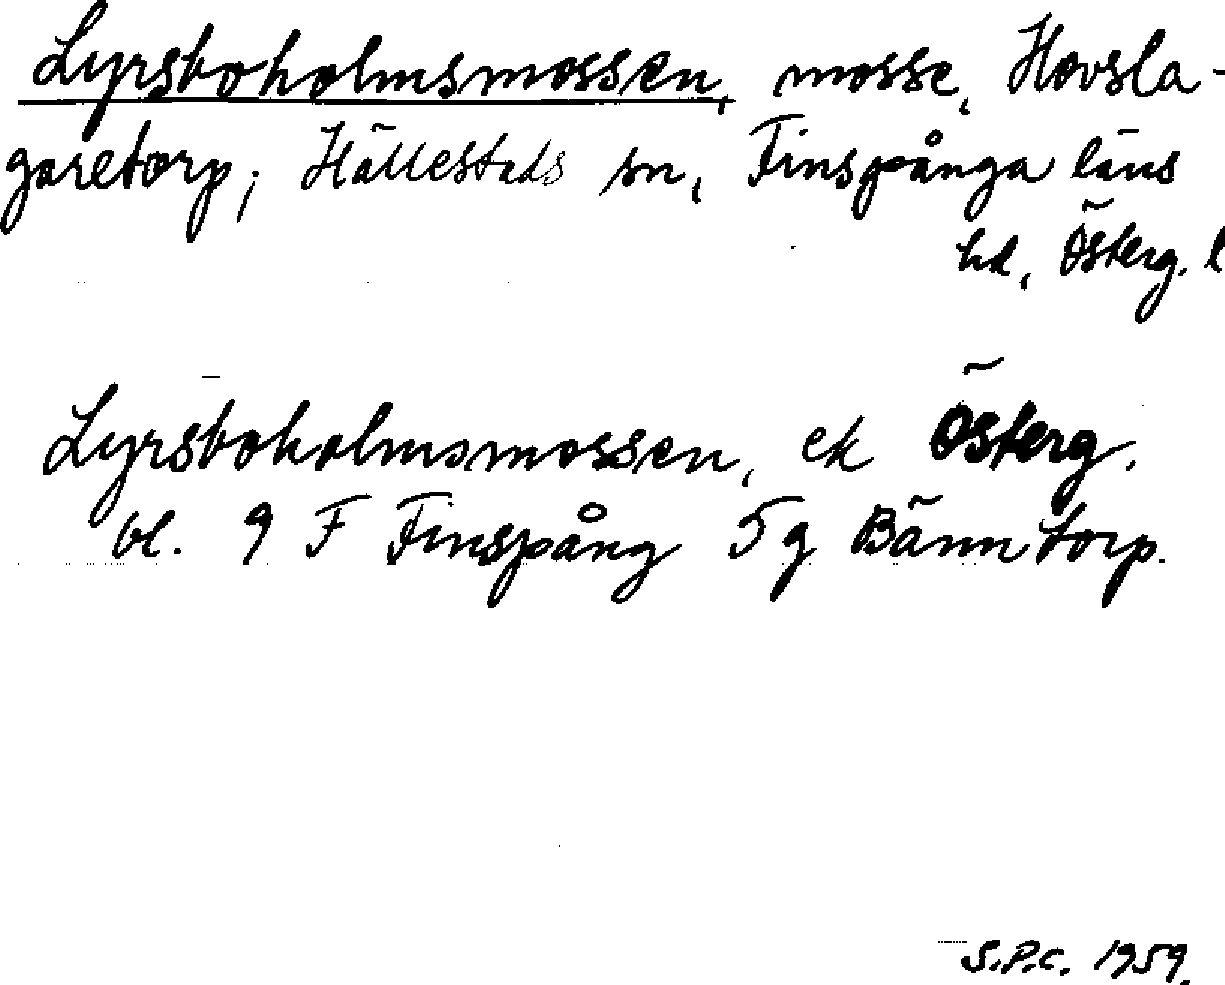 Lyrsboholmsmossen, mosse, Hovsla-
garetorp, Hällestads sn, Finspånga läns
hd, Österg. l
Lyrsboholmsmossen, ek Österg.
bl. 9 F Finspång 5g Bänntorp.
S.P.C. 1959.